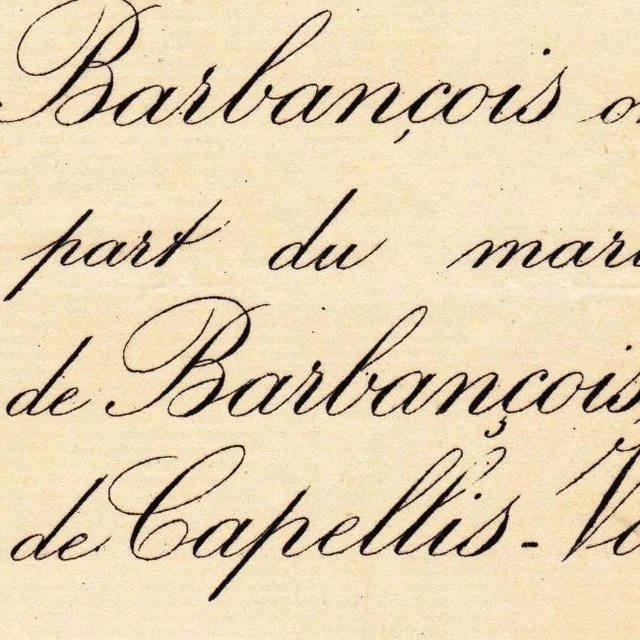 Barbançois o
part du mari
de Barbançois
de Capellis-Va